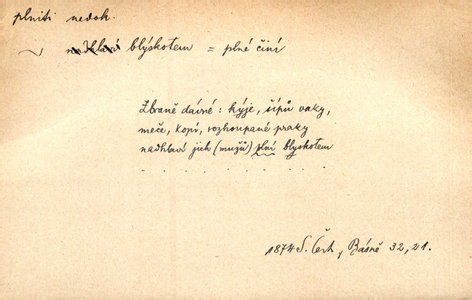 plniti nedok.
~ nadhlaví blýskotem = plné činí
Zbraně dávné: kyje, šípů vaky,
meče, kopí, rozhoupané praky
nadhlaví jich (mužů) plní blyskotem
. . . . . . . . . .
1874 S. Čech, Básně 32, 21.